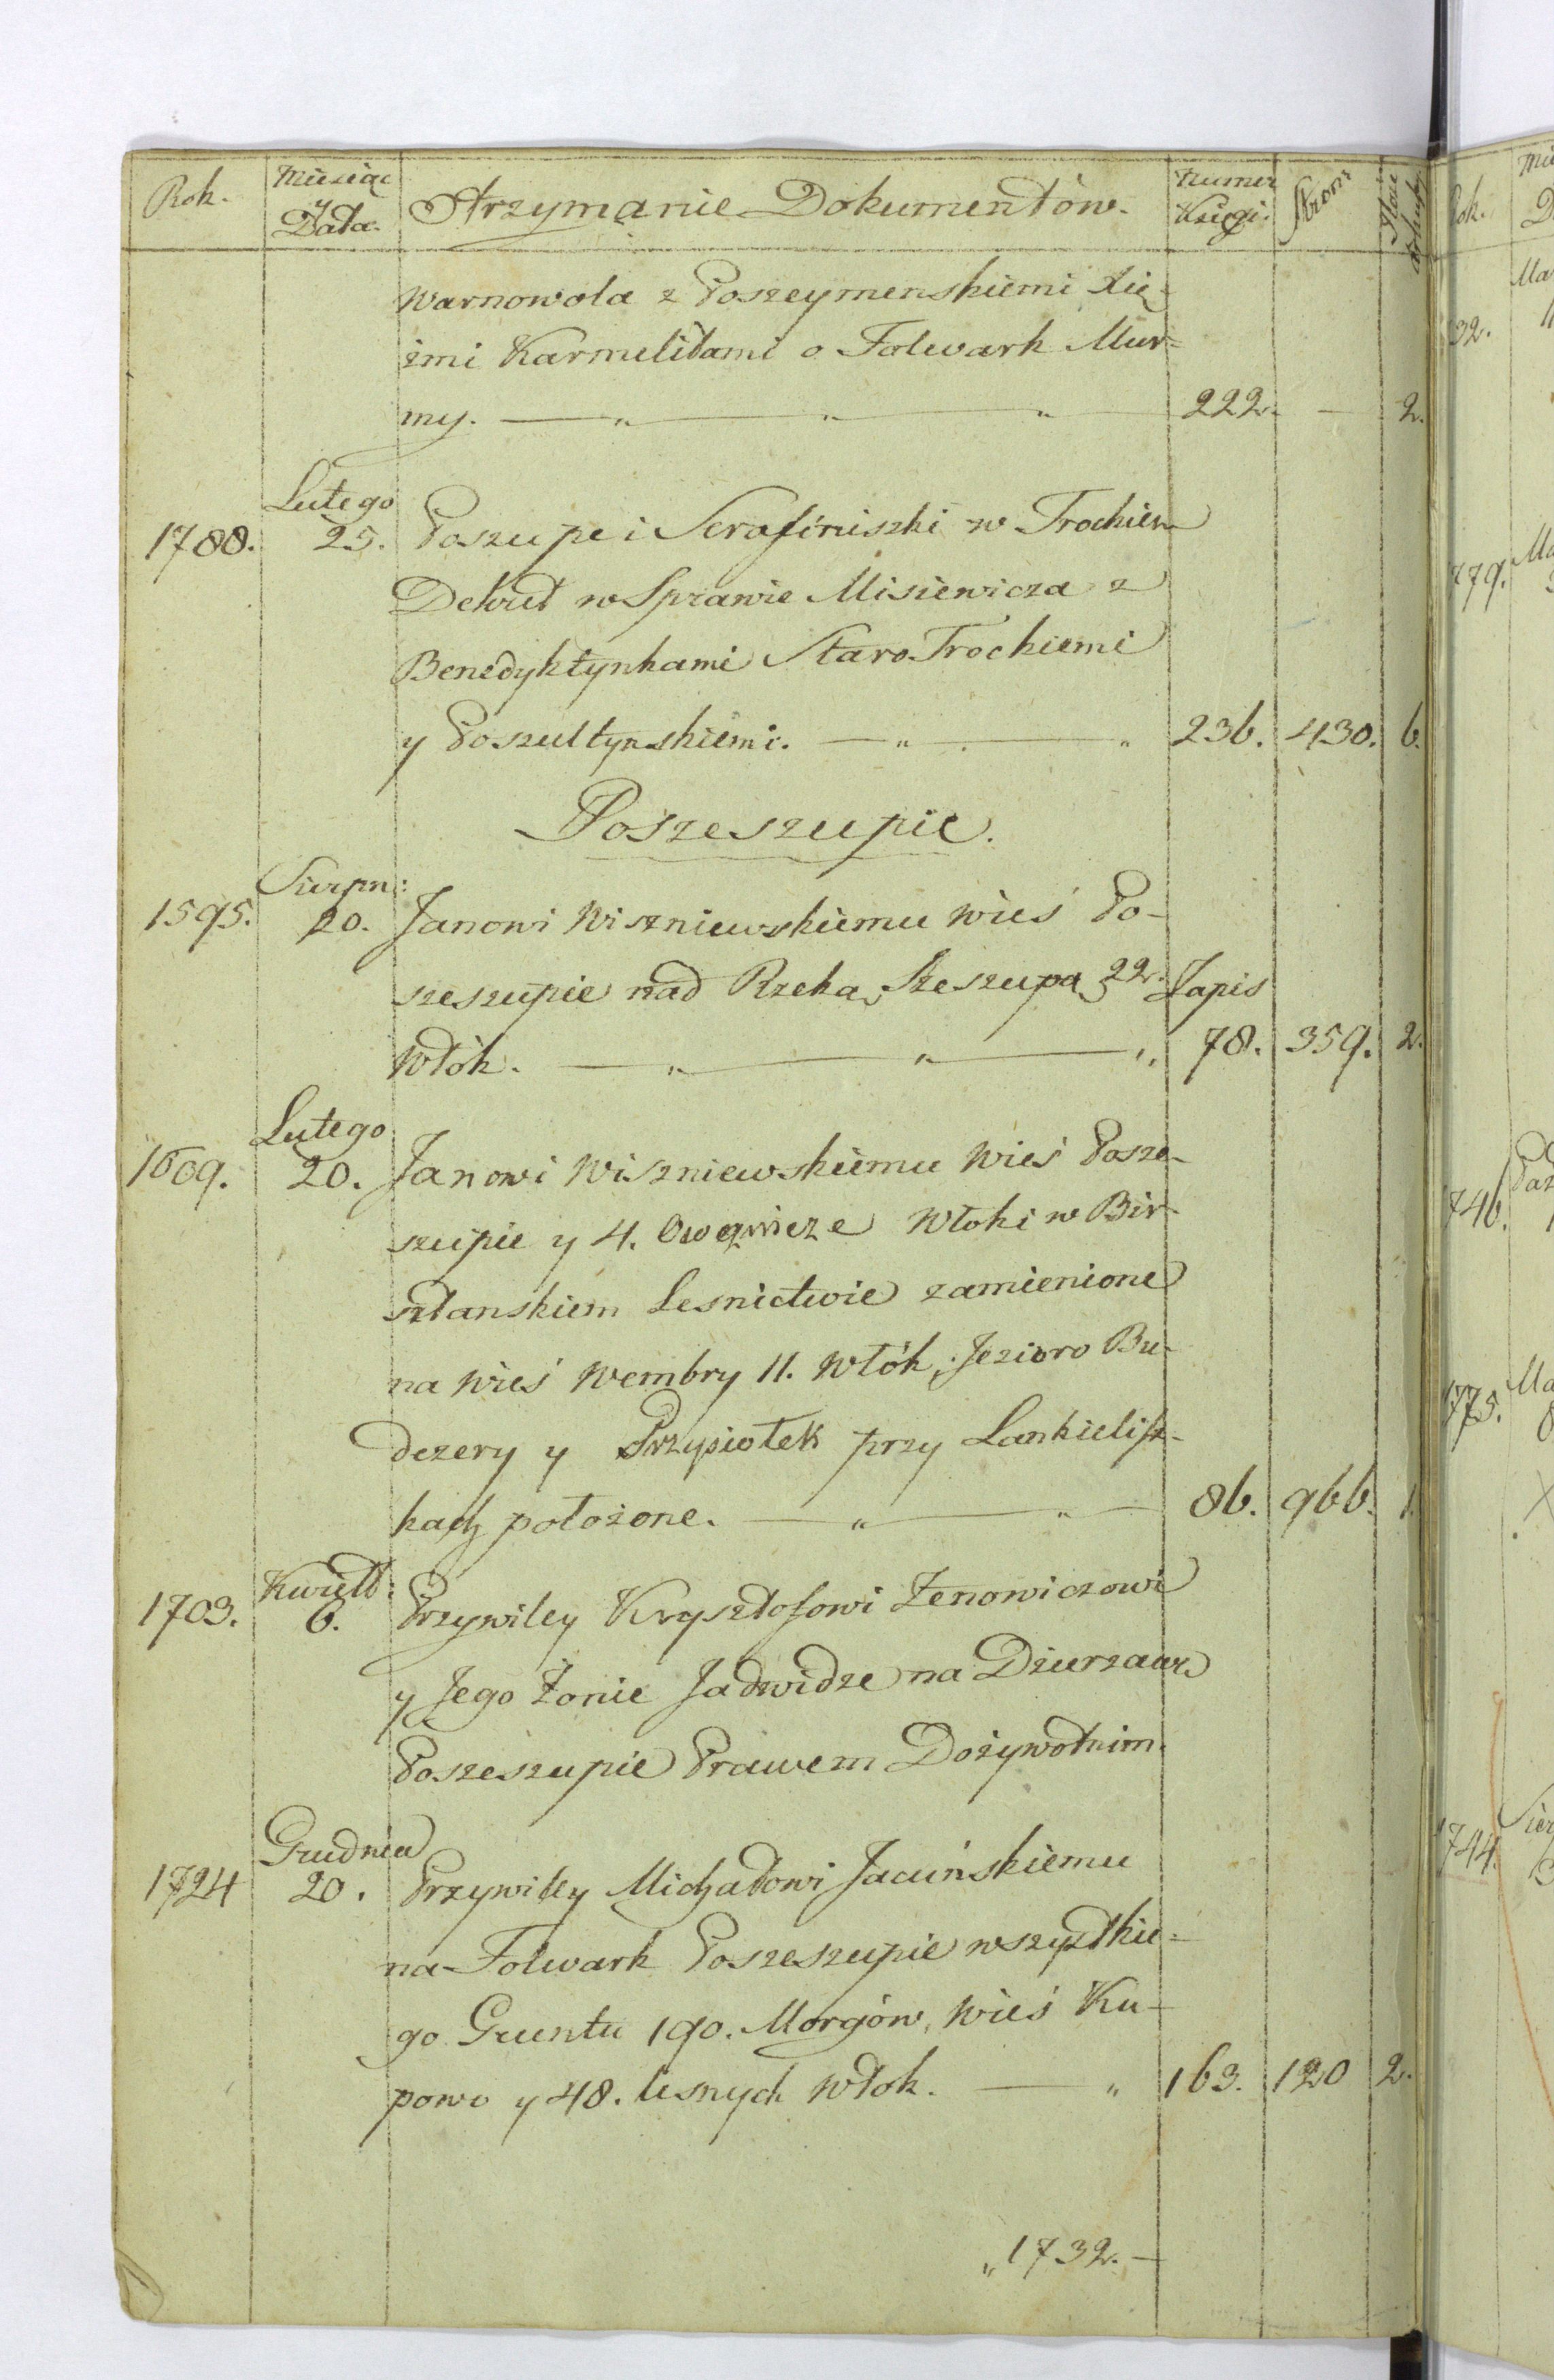 Rok. Miesiąc y Data. Strzymanie Dokumentów. Numer Księgi. Strona Ilość
Warnowola z Poszeymenskiemi Xię-
żmi Karmelitami o Folwark Mur-
my. — „ — „ — „ 222. — 2.
Lutego
1788. 25. Poszupe i Serafiniszki w Trockiem
Dekret w Sprawie Misiewicza z
Benedyktynkami Staro Trockiemi
y Poszultynskiemi. — „ — „ 236. 430. 6.
Poszeszupie.
Sierpn:
1595. 20. Janowi Wiszniewskiemu Wieś Po-
szeszupie nad Rzeką Szeszupą 22. Zapis
Włók. — „ — „ — „ 78. 359. 2.
Lutego
1609. 20. Janowi Wiszniewskiemu Wieś Posze-
szupie y 4. Włoki w Bir-
sztanskiem Lesnictwie zamienione
na Wieś Wembry 11. Włók, Jezioro Bu-
dezery y Przysiołek przy Lankielisz-
kach położone. — „ — „ — 86. 966. 1.
Kwiet:
1703. 6. Przywiley Krysztofowi Zenowiczowi
y Jego Żonie Jadwidze na Dzierzawę
Poszeszupie Prawem Dożywotnim.
Grudnia
1724 20. Przywiley Michałowi Jacuńskiemu
na Folwark Poszeszupie wszystkie-
go Gruntu 190. Morgów, Wieś Ku-
powo y 48. lesnych Włok. — „ 163. 120 2.
„1732. —